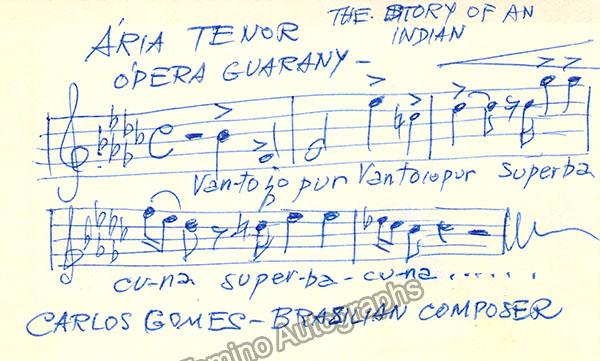 THE STORY OF AN
INDIAN
ÁRIA TENOR
ÓPERA GUARANY -
Van-to io pur Van to io pur superba
cu-na super-ba - cu-na ......
CARLOS GOMES - BRASILIAN COMPOSER
Tamino Autographs